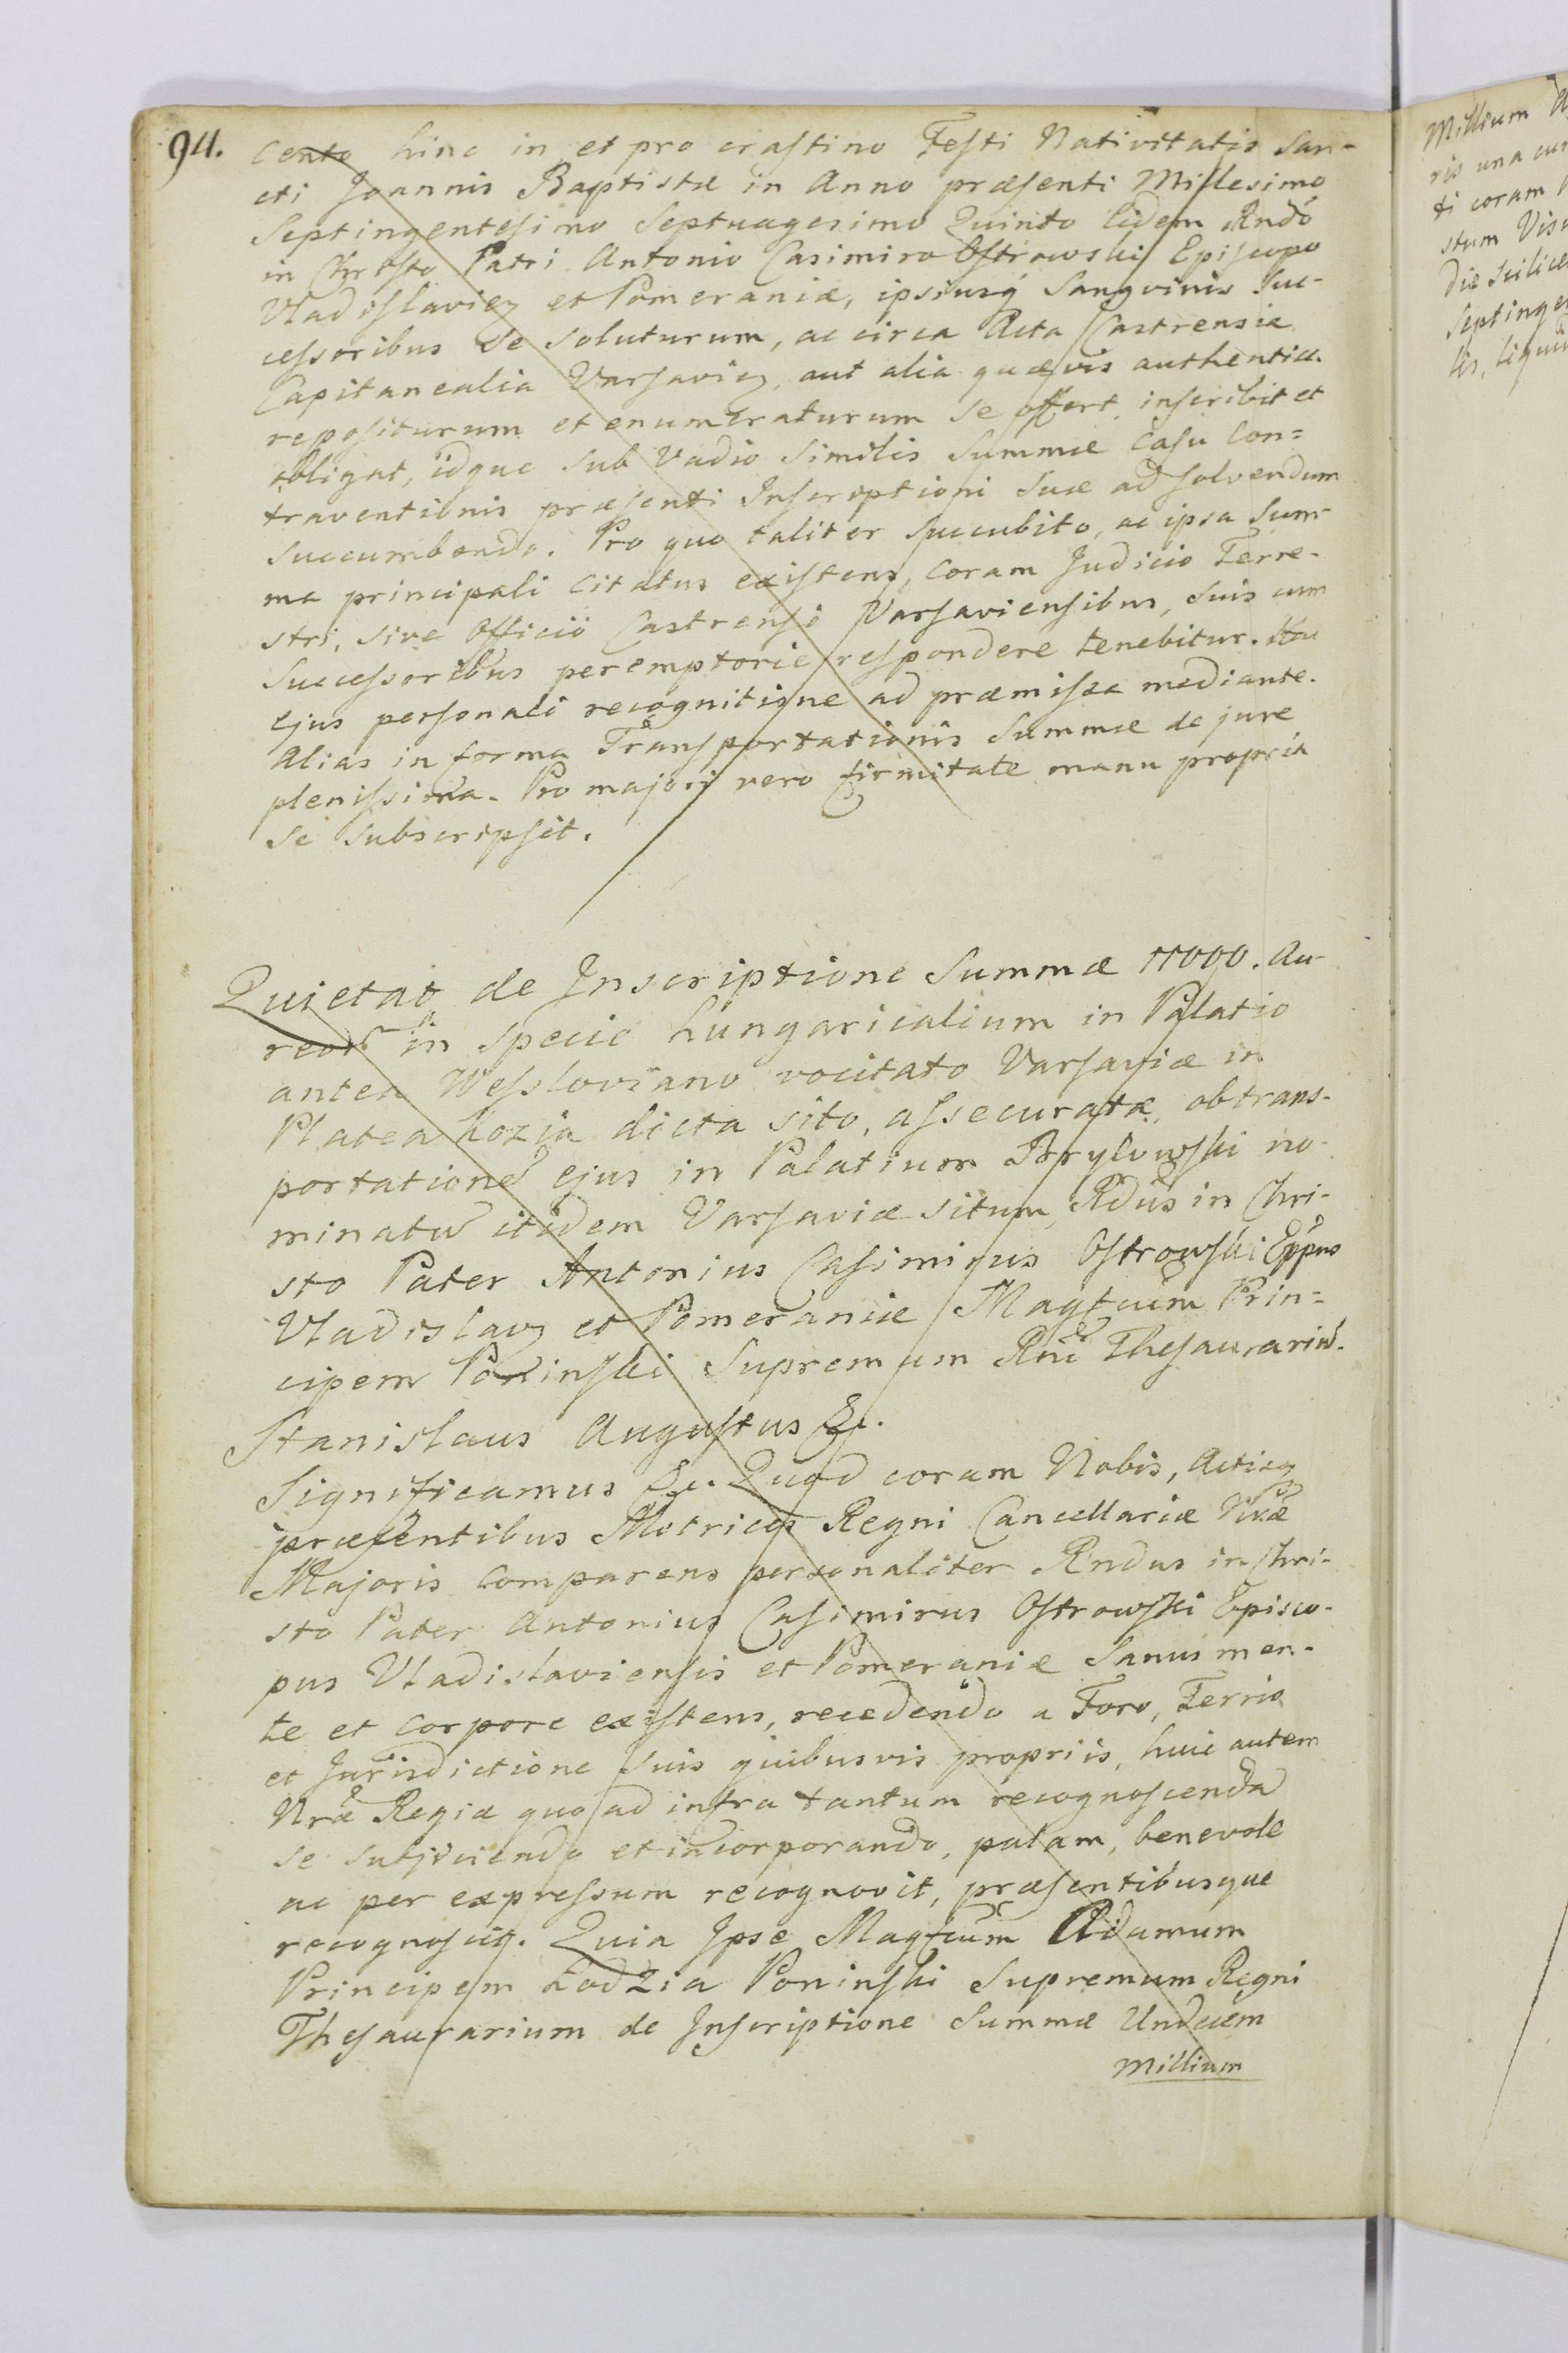 94.
cento hinc in et pro crastino Festi Nativitatis San-
cti Joannis Baptistæ in Anno præsenti Millesimo
Septingentesimo Septuagesimo Quinto eidem Rndo
in Christo Patri Antonio Casimiro Ostrowski Episcopo
Vladislavien et Pomeraniæ, ipsiusq Sangvinis Suc-
cessoribus se soluturum, ac circa Acta Castrensia
Capitanealia Varsavien, aut alia quævis authentica
repositurum et enumeraturum se offert, inscribit et
obligat, idque sub vadio similis Summæ casu Con=
traventionis præsenti Inscriptioni suæ ad solvendum
succumbendo. Pro quo taliter succubito, ac ipsa Sum-
ma principali citatus existens, coram Judicio Terre-
stri, sive Officio Castrensi Varsaviensibus, suis cum
Successoribus peremptorie respondere tenebitur. Hac
ejus personali recognitione ad præmissa mediante.
Alias in forma Transportationis Summæ de jure
plenissima. Pro majori vero firmitate manu propria
se subscripsit.
Quietat de Inscriptione Summæ 11000. Au-
reor in specie hungaricalium in Palatio
antea Wessloviano vocitato Varsaviæ in
Platea Kozia dicta sito, assecuratæ, ob trans-
portatione ejus in Palatium Brylowski no-
minatu itidem Varsaviæ situm, Rdus in Chri-
sto Pater Antonius Casimirus Ostrowski Eppus
Vladislav et Pomeraniæ Magfcum Prin=
cipem Poninski Supremum Rni Thesaurariu.
Stanislaus Augustus &c.
Significamus &c. Quod coram Nobis, Actisq
præsentibus Metrices Regni Cancellariæ Nræ
Majoris comparens personaliter Rndus in Chri-
sto Pater Antonius Casimirus Ostrowski Episco-
pus Vladislaviensis et Pomeraniæ Sanus men-
te et corpore existens, recedendo a Foro, Terris
et Jurisdictione suis quibusvis propriis, huic autem
Nræ Regiæ quo ad infra tantum recognoscenda
se subjiciendo et incorporando, palam, benevole
ac per expressum recognovit, præsentibusque
recognoscit. Quia Ipse Magfcum Adamum
Principem Łodzia Poninski Supremum Regni
Thesaurarium de Inscriptione Summæ Undecim
Millium
Millium
ris una cum
ti coram
stum
die scilicet
Septinge
lis,